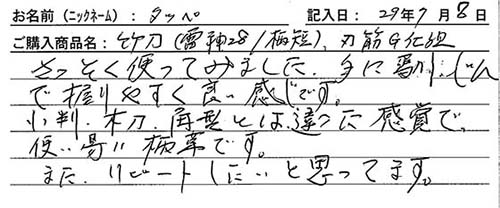 お名前(ニックネーム): タッペ 記入日: 29年7月8日
ご購入商品名: 竹刀(雷神28/柄短)、刃筋G仕組
さっそく使ってみました。手に馴じん
で握りやすく良い感じです。
小判、木刀、角型とは違った感覚で、
使い易い柄革です。
また、リピートしたいと思ってます。